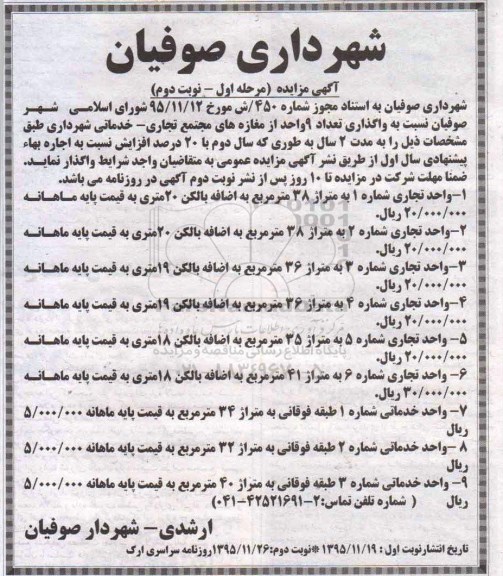 شهرداری صوفیان
آگهی مزایده (مرحله اول - نوبت دوم)
شهرداری صوفیان به استناد مجوز شماره ۴۵۰/ش مورخ ۹۵/۱۱/۱۲ شورای اسلامی شهر
صوفیان نسبت به واگذاری تعداد ۹واحد از مغازه های مجتمع تجاری- خدماتی شهرداری طبق
مشخصات ذیل را به مدت ۲ سال به طوری که سال دوم با ۲۰ درصد افزایش نسبت به اجاره بهاء
پیشنهادی سال اول از طریق نشر آگهی مزایده عمومی به متقاضیان واجد شرایط واگذار نماید.
ضمنا مهلت شرکت در مزایده تا ۱۰ روز پس از نشر نوبت دوم آگهی در روزنامه می باشد.
۱-واحد تجاری شماره ۱ به متراژ ۳۸ مترمربع به اضافه بالکن ۲۰متری به قیمت پایه ماهانه
۲۰/۰۰۰/۰۰۰ ریال.
۲-واحد تجاری شماره ۲ به متراژ ۳۸ مترمربع به اضافه بالکن ۲۰متری به قیمت پایه ماهانه
۲۰/۰۰۰/۰۰۰ ریال.
۳-واحد تجاری شماره ۳ به متراژ ۳۶ مترمربع به اضافه بالکن ۱۹متری به قیمت پایه ماهانه
۲۰/۰۰۰/۰۰۰ ریال.
۴-واحد تجاری شماره ۴ به متراژ ۳۶ مترمربع به اضافه بالکن ۱۹متری به قیمت پایه ماهانه
۲۰/۰۰۰/۰۰۰ ریال.
۵- واحد تجاری شماره ۵ به متراژ ۳۵ مترمربع به اضافه بالکن ۱۸متری به قیمت پایه ماهانه
۲۰/۰۰۰/۰۰۰ ریال.
۶- واحد تجاری شماره ۶ به متراژ ۴۱ مترمربع به اضافه بالکن ۱۸متری به قیمت پایه ماهانه
۳۰/۰۰۰/۰۰۰ ریال.
۷- واحد خدماتی شماره ۱ طبقه فوقانی به متراژ ۳۴ مترمربع به قیمت پایه ماهانه ۵/۰۰۰/۰۰۰
ریال
۸ -واحد خدماتی شماره ۲ طبقه فوقانی به متراژ ۳۲ مترمربع به قیمت پایه ماهانه ۵/۰۰۰/۰۰۰
ریال
۹- واحد خدماتی شماره ۳ طبقه فوقانی به متراژ ۴۰ مترمربع به قیمت پایه ماهانه ۵/۰۰۰/۰۰۰
ریال ( شماره تلفن تماس:۲-۴۲۵۲۱۶۹۱-۰۴۱)
ارشدی- شهردار صوفیان
تاریخ انتشارنوبت اول : ۱۳۹۵/۱۱/۱۹ *نوبت دوم:۱۳۹۵/۱۱/۲۶روزنامه سراسری ارک